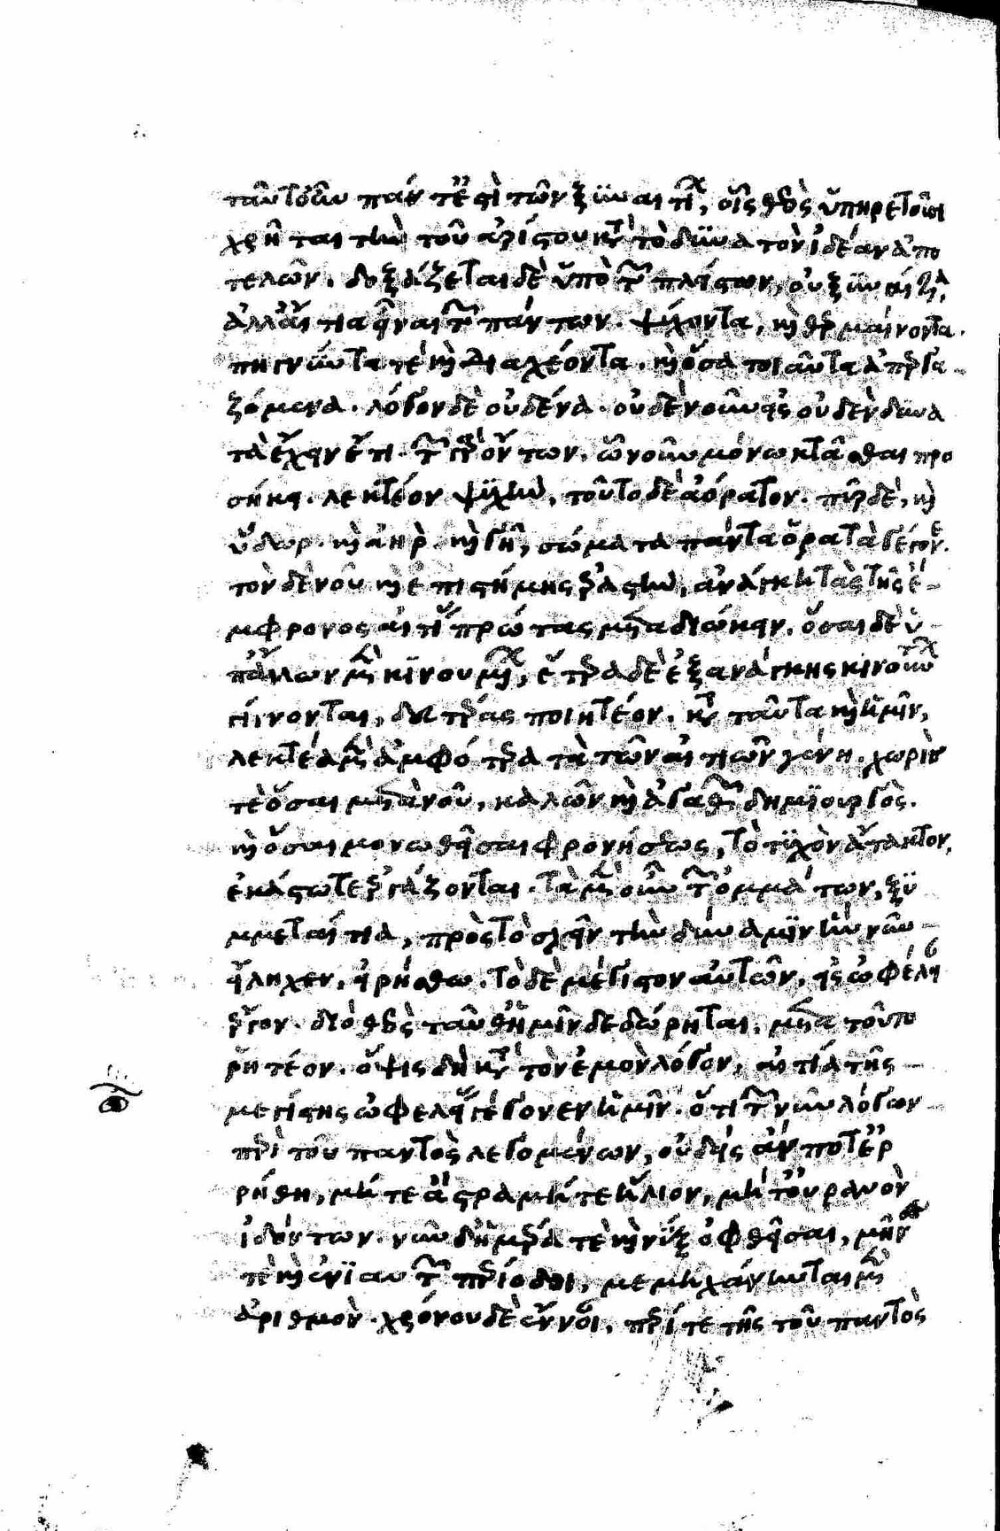 ταῦτ' οὖν πάντ' ἔστι τῶν ξυναιτίων, οἷς θεὸς ὑπηρετοῦσι
χρῆται τὴν τοῦ ἀρίστου κατὰ τὸ δυνατὸν ἰδέαν ἀπο
τελῶν. δοξάζεται δὲ ὑπὸ τῶν πλείστων, οὐ ξυναίτια,
ἀλλ' αἴτια εἶναι τῶν πάντων. ψύχοντα, καὶ θερμαίνοντα.
πηγνύντα τε καὶ διαχέοντα. καὶ ὅσα τοιαῦτα ἀπεργα
ζόμενα. λόγον δὲ οὐδένα. οὐδὲ νοῦν εἰς οὐδὲν δυνα
τὰ ἔχειν ἔτι. τῶν γὰρ ὄντων, ᾧ νοῦν μόνῳ κτᾶσθαι προ
σήκει. λεκτέον ψυχὴν, τοῦτο δὲ ἀόρατον. πῦρ δὲ, καὶ
ὕδωρ. καὶ ἀὴρ. καὶ γῆ, σώματα πάντα ὁρατὰ γέγονεν.
τὸν δὲ νοῦ καὶ ἐπιστήμης ἐραστὴν, ἀνάγκη τὰς τῆς ἔ
μφρονος αἰτίας πρώτας μεταδιώκειν. ὅσαι δὲ ὑ
π' ἄλλων μὲν κινουμένων, ἕτερα δὲ ἐξ ἀνάγκης κινούντων
γίγνονται, δευτέρας ποιητέον. κατὰ ταῦτα καὶ ἡμῖν,
λεκτέα μὲν ἀμφότερα τὰ τῶν αἰτιῶν γένη. χωρὶς
τε ὅσαι μετὰ νοῦ, καλῶν καὶ ἀγαθῶν δημιουργὸς.
καὶ ὅσαι μονωθεῖσαι φρονήσεως, τὸ τυχὸν ἄτακτον,
ἑκάστωτε ἐργάζονται. τὰ μὲν οὖν τῶν ὀμμάτων, ξυ
μμεταίτια, πρὸς τὸ σχεῖν τὴν δύναμιν ἣν νῦν
εἴληχεν, εἰρήσθω. τὸ δὲ μέγιστον αὐτῶν, εἰς ὠφέλειαν
ἔργον. διὸ θεὸς ταῦθ' ἡμῖν δεδώρηται, μετὰ τοῦτο
ῥητέον. ὄψις δὴ κατὰ τὸν ἐμὸν λόγον, αἰτία τῆς
μεγίστης ὠφελείας γέγονεν ἡμῖν. ὅτι τῶν νῦν λόγων
περὶ τοῦ παντὸς λεγομένων, οὐδεὶς ἄν ποτε ἐρ
ρήθη, μήτε ἄστρα μήτε ἥλιον, μήτ' οὐρανὸν
ἰδόντων. νῦν δ' ἡμέρα τε καὶ νὺξ ὀφθεῖσαι, μῆνές
τε καὶ ἐνιαυτῶν περίοδοι, μεμηχάνηνται μὲν
ἀριθμὸν. χρόνου δὲ ἔννοι, περί τε τῆς τοῦ παντὸς